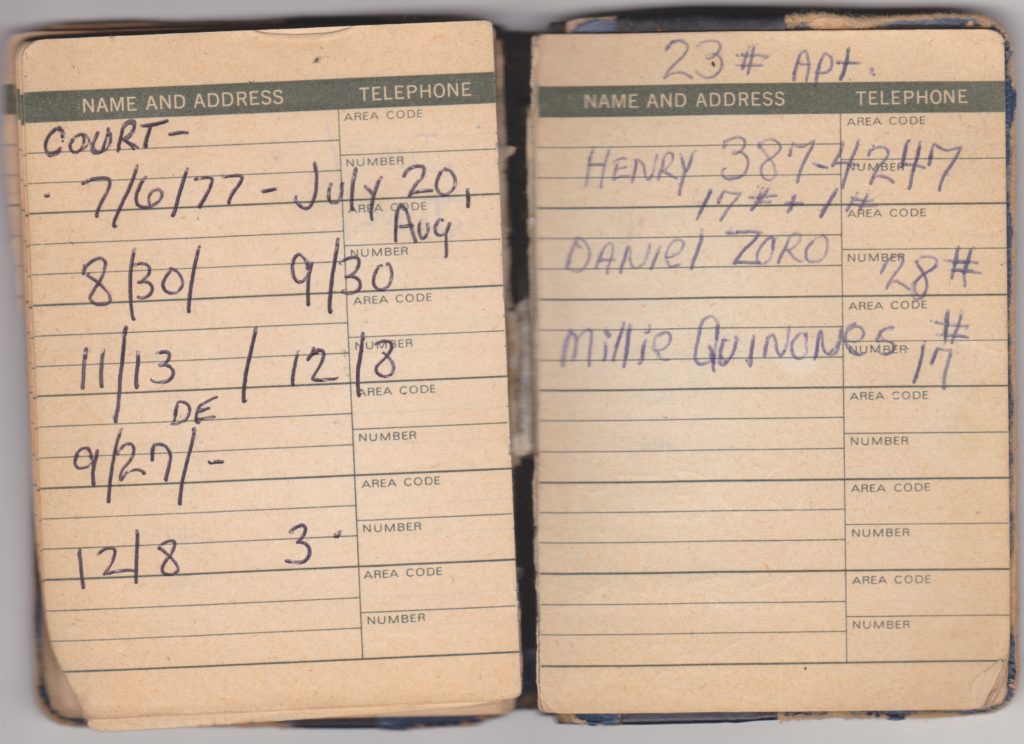 NAME AND ADDRESS TELEPHONE
AREA CODE
COURT-
NUMBER
7/6/77 - July 20,
AREA CODE
Aug
NUMBER
8/30/ 9/30
AREA CODE
NUMBER
11/13 / 12/8
AREA CODE
DE
NUMBER
9/27/-
AREA CODE
NUMBER
12/8 3.
AREA CODE
NUMBER
23 # APt.
NAME AND ADDRESS TELEPHONE
AREA CODE
NUMBER
HENRY 387-4247
17 # + 1 #
AREA CODE
DANIEl ZORO
NUMBER
28 #
AREA CODE
Millie QUINONES #
NUMBER
17
AREA CODE
NUMBER
AREA CODE
NUMBER
AREA CODE
NUMBER